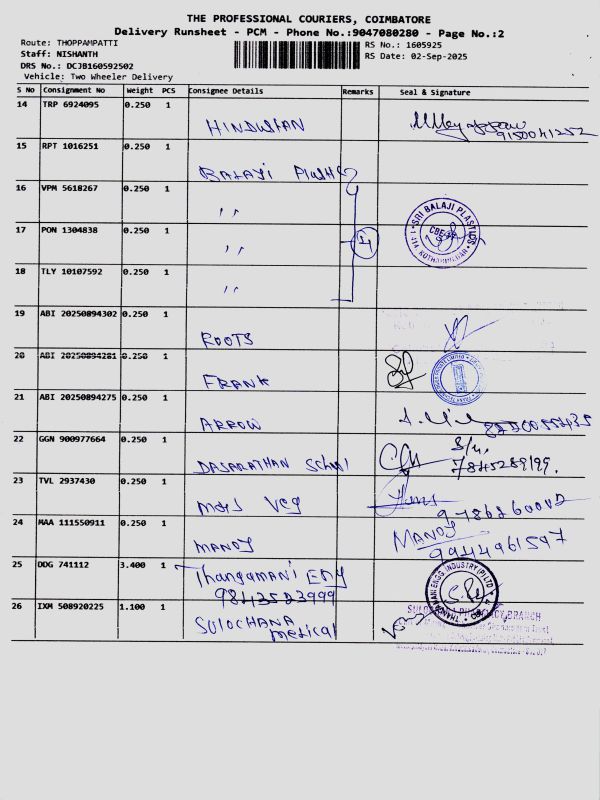 THE PROFESSIONAL COURIERS, COIMBATORE
Delivery Runsheet - PCM - Phone No.:9047080280 - Page No.:2
Route: THOPPAMPATTI
Staff: NISHANTH
DRS No.: DCJB160592502
Vehicle: Two Wheeler Delivery
RS No.: 1605925
RS Date: 02-Sep-2025
S No Consignment No Weight PCS Consignee Details Remarks Seal & Signature
14 TRP 6924095 0.250 1
HINDUSTAN
9150041252
15 RPT 1016251 0.250 1
BALAJI
16 VPM 5618267 0.250 1
''
SRI BALAJI PLASTICS
17 PON 1304838 0.250 1
''
18 TLY 10107592 0.250 1
''
19 ABI 20250894302 0.250 1
ROOTS
20 ABI 20250894281 0.250 1
FRANK
21 ABI 20250894275 0.250 1
ARROW
22 GGN 900977664 0.250 1
DASARATHAN School
7845289199.
23 TVL 2937430 0.250 1
Veg
24 MAA 111550911 0.250 1
MANOJ
MANOJ
9944961597
25 DDG 741112 3.400 1
Thangamani
9843523999
26 IXM 508920225 1.100 1
SULOCHANA
medical